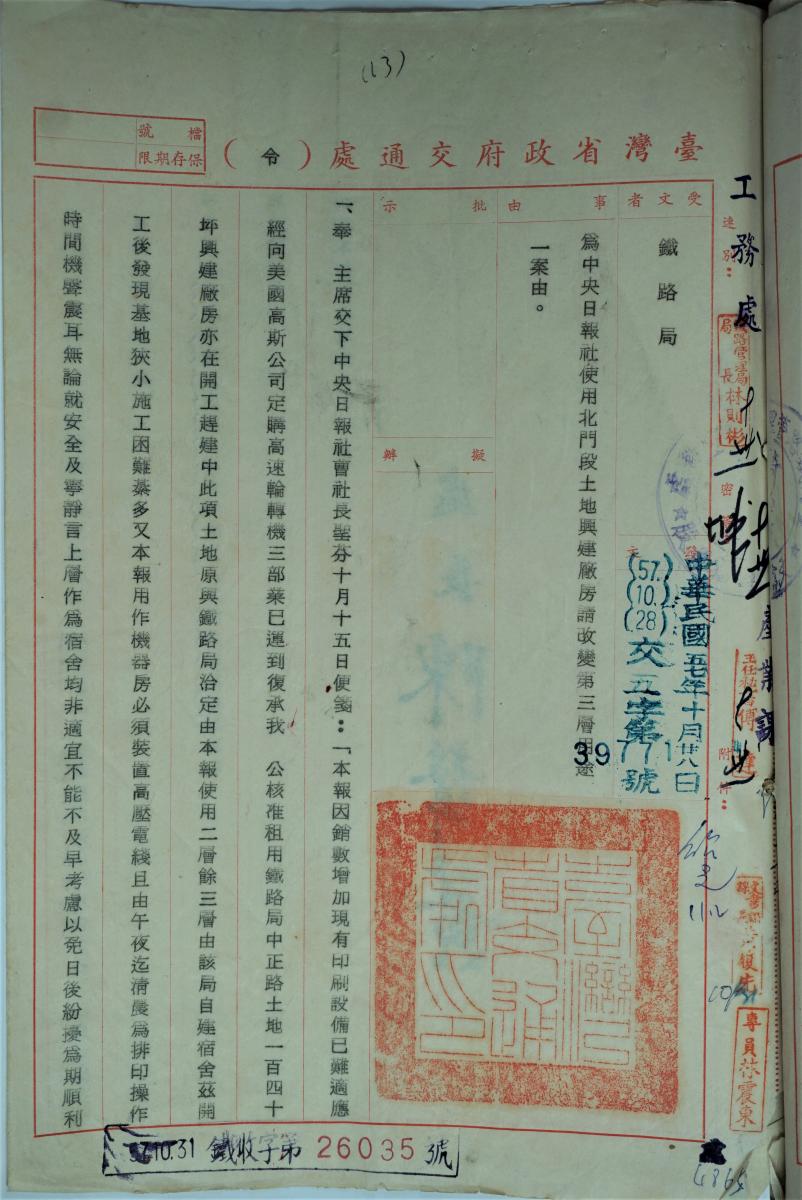 (13)
檔號
保存期限
臺灣省政府交通處(令)
工務處
速別:
密
附件:
受文者
鐵路局
中華民國五七年十月廿八日
(57.10.28)交五字第39771號
事由
為中央日報社使用北門段土地興建廠房請改變第三層用途
一案由。
批示
擬辦
一、奉 主席交下中央日報社曹社長聖芬十月十五日便箋:「本報因銷數增加現有印刷設備已難適應
經向美國高斯公司定購高速輪轉機三部業已運到復承我 公核准租用鐵路局中正路土地一百四十
坪興建廠房亦在開工趕建中此項土地原與鐵路局洽定由本報使用二層餘三層由該局自建宿舍茲開
工後發現基地狹小施工困難綦多又本報用作機器房必須裝置高壓電綫且由午夜迄清晨為排印操作
時間機聲震耳無論就安全及寧靜言上層作為宿舍均非適宜不能不及早考慮以免日後紛擾為期順利
局長林則彬
產業課
專員林震東
57.10.31 鐵收字第26035號